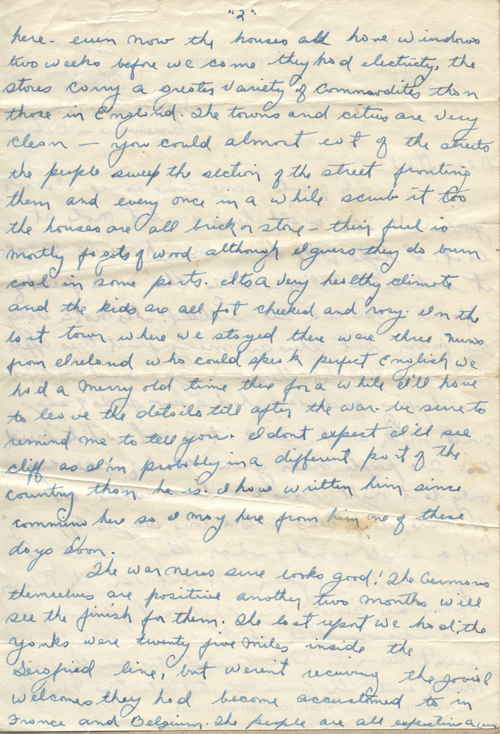 "2"
here - even now the houses all have windows
two weeks before we came they had electricty, the
stores carry a greater variety of commodites than
those in England. The towns and cities are very
clean — you could almost eat of the streets
the people sweep the section of the street fronting
them and every once in a while scrub it too
the houses are all brick or stone - their fuel is
mostly of wood although I guess they do burn
coal in some parts. Its a very healthy climate
and the kids are all fat cheeked and rosy. In the
last town where we stayed there were three nuns
from Ireland who could speak perfect English we
had a merry old time there for a while I'll have
to leave the details till after the war - be sure to
remind me to tell you. I dont expect I'll see
Cliff as I'm probably in a different part of the
country than he is. I have written him since
comming here so I may here from him one of these
days soon.
The war news sure looks good! The Germans
themselves are positive another two months will
see the finish for them. The last report we had, the
Yanks were twenty five miles inside the
line, but werent the jovial
welcomes they had become accustomed to in
France and Belgium. The people are all